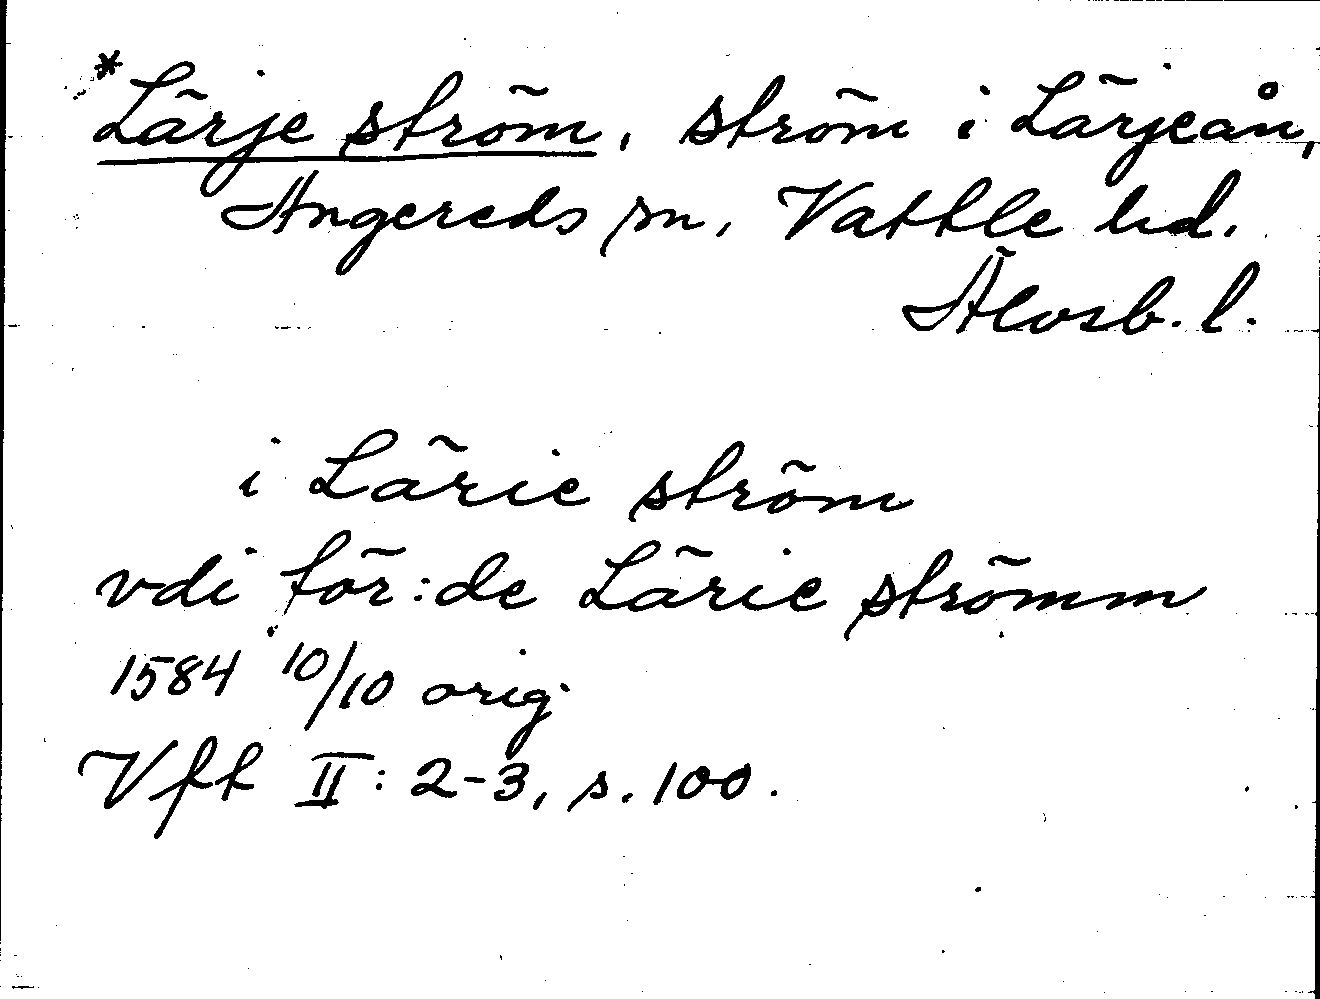 *Lärje ström, ström i Lärjeån,
Angereds sn, Vättle hd.
Älvsb. l.
i Lärie ström
vdi för:de Lärie strömm
1584 10/10 orig.
Vft II: 2-3, s. 100.